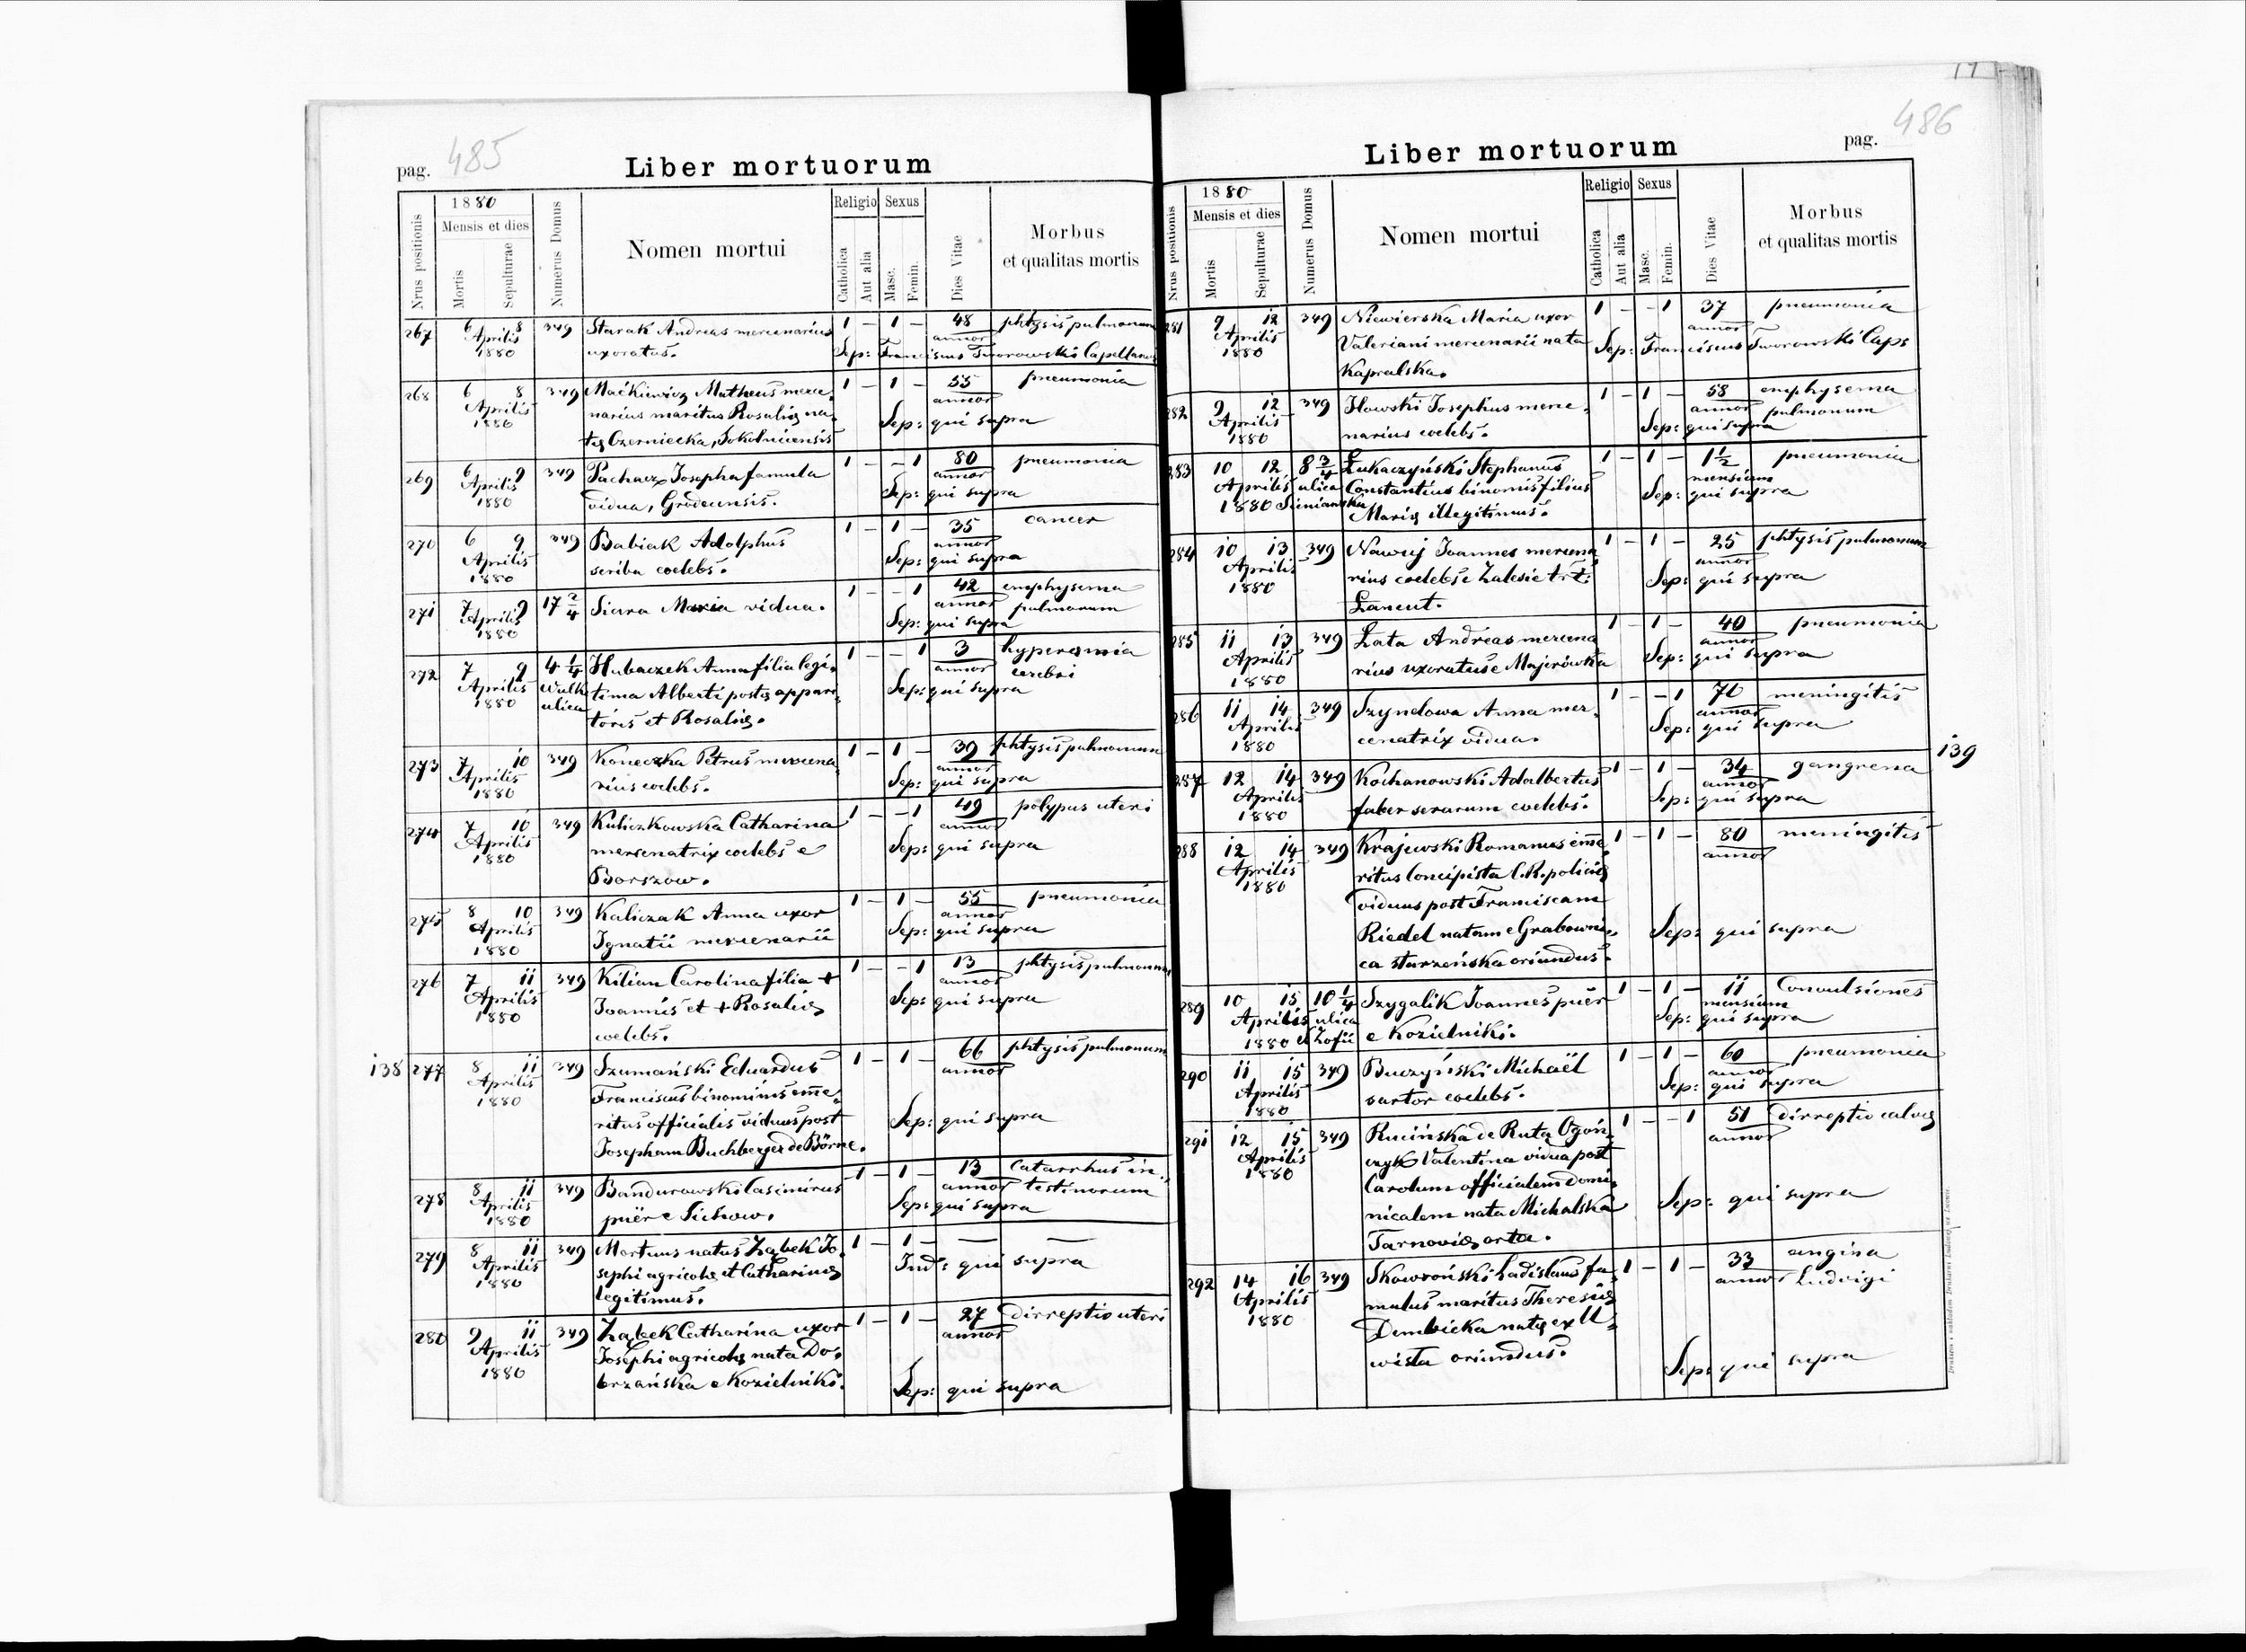 pag. 485
Liber mortuorum
Nrus positionis
1880
Mensis et dies
Mortis
Sepulturae
Numerus Domus
Nomen mortui
Religio
Catholica
Aut alia
Sexus
Masc.
Femin.
Dies Vitae
Morbus
et qualitas mortis
267 6 8 349 Starak Andreas mercenarius 1 – 1 – 48 phtysis pulmonum
Aprilis uxoratus. annor
1880 Sep: Franciscus Tworowski Capellanus
268 6 8 349 Maćkiewicz Matheus merce- 1 – 1 – 55 pneumonia
Aprilis narius maritus Rosalię na- annor
1880 tę Czerniecka, Sokolnicensis Sep: qui supra
269 6 9 349 Pachacz Josepha famula 1 – – 1 80 pneumonia
Aprilis vidua, Grodecensis. annor
1880 Sep: qui supra
270 6 9 349 Babiak Adolphus 1 – 1 – 35 cancer
Aprilis scriba coelebs. annor
1880 Sep: qui supra
271 7 9 17 2/4 Siara Maria vidua. 1 – – 1 42 emphysema
Aprilis annor pulmonum
1880 Sep: qui supra
272 7 9 4 1/4 Hubaczek Anna filia legi- 1 – – 1 3 hyperęmia
Aprilis Wulk tima Alberti postę appari- annor cerebri
1880 ulica toris et Rosalię. Sep: qui supra
273 7 10 349 Koneczka Petrus mercena- 1 – 1 – 39 phtysis pulmonum
Aprilis rius coelebs. annor
1880 Sep: qui supra
274 7 10 349 Kuliczkowska Catharina 1 – – 1 49 polypus uteri
Aprilis mercenatrix coelebs e annor
1880 Borszow. Sep: qui supra
275 8 10 349 Kaliczak Anna uxor 1 – 1 – 55 pneumonia
Aprilis Ignatii mercenarii annor
1880 Sep: qui supra
276 7 11 349 Kilian Carolina filia + 1 – – 1 13 phtysis pulmonum
Aprilis Joannis et + Rosalię annor
1880 coelebs. Sep: qui supra
138 277 8 11 349 Szumański Eduardus 1 – 1 – 66 phtysis pulmonum
Aprilis Franciscus binominis eme- annor
1880 ritus officialis viduus post
Josepham Buchberger de Börne. Sep: qui supra
278 8 11 349 Bandurowski Casimirus 1 – 1 – 13 Catarrhus in-
Aprilis puër e Sichow. annor testinorum
1880 Sep: qui supra
279 8 11 349 Mortuus natus Ząbek Jo- 1 – 1 – — —
Aprilis sephi agricolę et Catharinę Ind: qui supra
1880 legitimus.
280 9 11 349 Ząbek Catharina uxor 1 – 1 – 27 dirreptio uteri
Aprilis Josephi agricolę nata Do- annor
1880 brzańska e Kozielniki. Sep: qui supra
486
Liber mortuorum
pag.
Nrus positionis
1880
Mensis et dies
Mortis
Sepulturae
Numerus Domus
Nomen mortui
Religio
Catholica
Aut alia
Sexus
Masc.
Femin.
Dies Vitae
Morbus
et qualitas mortis
281 9 12 349 Niewierska Maria uxor 1 – – 1 37 pneumonia
Aprilis Valeriani mercenarii nata annor
1880 Kapralska. Sep: Franciscus Tworowski Caps
282 9 12 349 Iłowski Josephus merce- 1 – 1 – 58 emphysema
Aprilis narius coelebs. annor pulmonum
1880 Sep: qui supra
283 10 12 8 3/4 Łukaczyński Stephanus 1 – 1 – 1 1/2 pneumonia
Aprilis ulica Constantius binomis filius mensium
1880 Sieniawska Marię illegitimus. Sep: qui supra
284 10 13 349 Nawrij Joannes mercena 1 – 1 – 25 phtysis pulmonum
Aprilis rius coelebs e Zalesie trt: annor
1880 Łancut. Sep: qui supra
285 11 13 349 Łata Andreas mercena 1 – 1 – 40 pneumonia
Aprilis rius uxoratus e Majerówka annor
1880 Sep: qui supra
286 11 14 349 Szyndowa Anna mer- 1 – – 1 70 meningitis
Aprilis cenatrix vidua. annor
1880 Sep: qui supra
287 12 14 349 Kochanowski Adalbertus 1 – 1 – 34 gangrena 139
Aprilis faber serarum coelebs. annor
1880 Sep: qui supra
288 12 14 349 Krajewski Romanus eme- 1 – 1 – 80 meningitis
Aprilis ritus Concipista C.R. policię annor
1880 viduus post Franciscam
Riedel natam e Grabowni- Sep: qui supra
ca starzeńska oriundus.
289 10 15 10 1/4 Szygalik Joannes puër 1 – 1 – 11 Convulsiones
Aprilis ulica e Kozielniki. mensium
1880 s Zofii Sep: qui supra
290 11 15 349 Buczyński Michaël 1 – 1 – 60 pneumonia
Aprilis sartor coelebs. annor
1880 Sep: qui supra
291 12 15 349 Rucińska de Ruta Ogoń- 1 – – 1 51 dirreptio calvę
Aprilis czyk Valentina vidua post annor
1880 Carolum officialem domi-
nicalem nata Michalska Sep: qui supra
Tarnovię orta.
292 14 16 349 Skowroński Ladislaus fa- 1 – 1 – 33 angina
Aprilis mulus maritus Theresię annor Ludvigi
1880 Dembicka natę ex U-
wista oriundus. Sep: qui supra